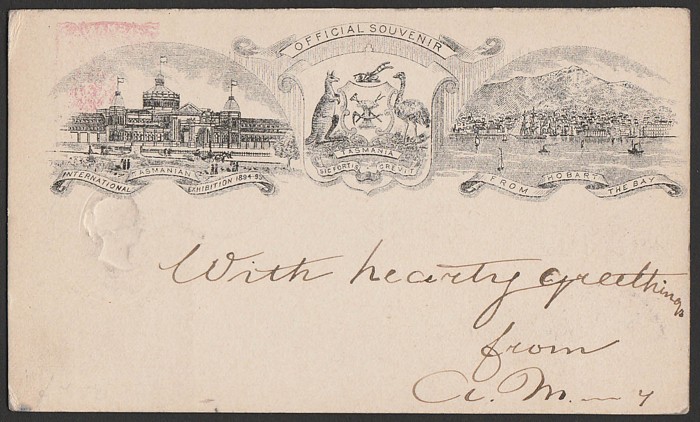 OFFICIAL SOUVENIR
TASMANIAN
INTERNATIONAL EXHIBITION 1894-95
TASMANIA
SIC FORTIS CREVIT
HOBART
FROM THE BAY
With hearty greethings
from
A. M.